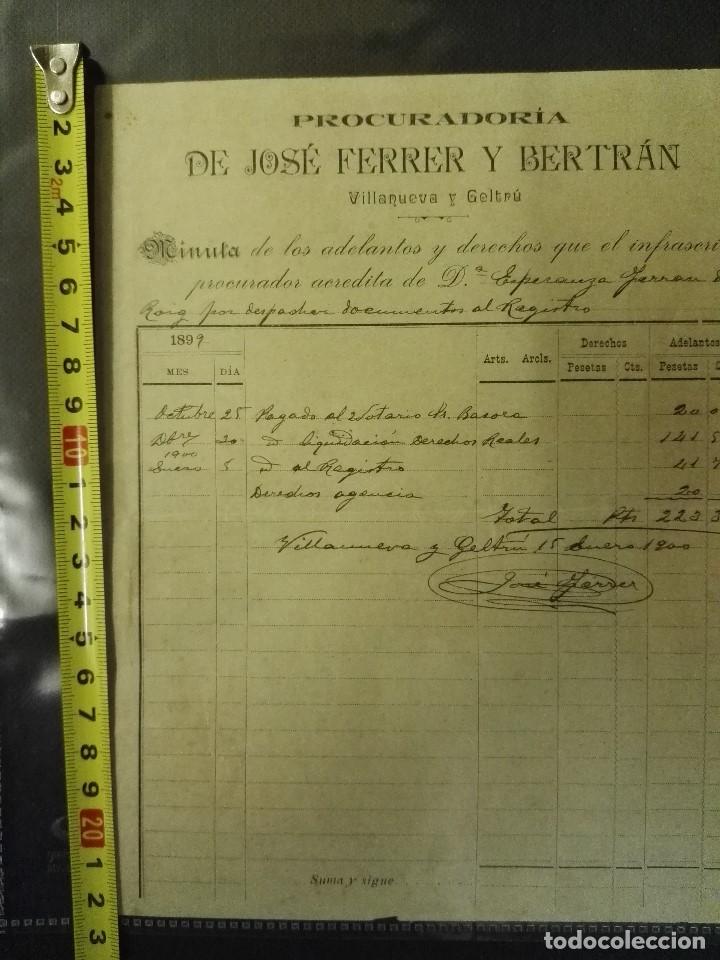 PROCURADORÍA
DE JOSÉ FERRER Y BERTRÁN
Villanueva y Geltrú
Minuta de los adelantos y derechos que el infrascri
procurador acredita de D.ª Esperanza Ferran
Roig por despachar documentos al Registro
1899 Derechos Adelantos
MES DÍA Arts. Arcls. Pesetas Cts. Pesetas
Octubre 25 Pagado al Notario Sr. Basora 20
Dbre 20 Dº liquidación Derechos Reales 141
1900
Enero 5 Dº al Registro 41
Derechos agencia 20
Total Pts 223
Villanueva y Geltrú 15 Enero 1900
José Ferrer
Suma y sigue
2 3 4 5 6 7 8 9 10 1 2 3 4 5 6 7 8 9 20 1 2 3
2m
todocoleccion
todocoleccion.net